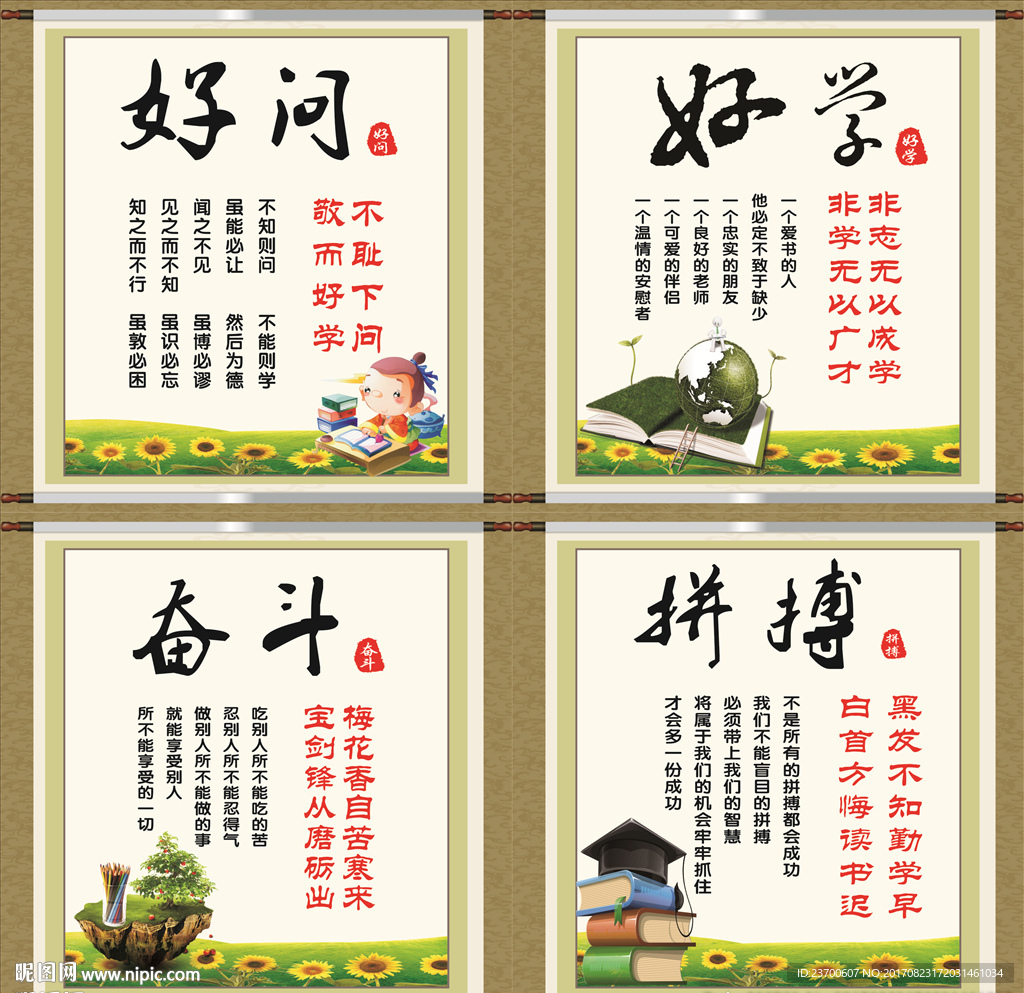 好问
好问
不耻下问
敬而好学
不知则问 不能则学
虽能必让 然后为德
闻之不见 虽博必谬
见之而不知 虽识必忘
知之而不行 虽敦必困
好学
好学
非志无以成学
非学无以广才
一个爱书的人
他必定不致于缺少
一个忠实的朋友
一个良好的老师
一个可爱的伴侣
一个温情的安慰者
奋斗
奋斗
梅花香自苦寒来
宝剑锋从磨砺出
吃别人所不能吃的苦
忍别人所不能忍得气
做别人所不能做的事
就能享受别人
所不能享受的一切
拼搏
拼搏
黑发不知勤学早
白首方悔读书迟
不是所有的拼搏都会成功
我们不能盲目的拼搏
必须带上我们的智慧
将属于我们的机会牢牢抓住
才会多一份成功
昵图网 www.nipic.com
ID:23700607 NO:20170823172031461034